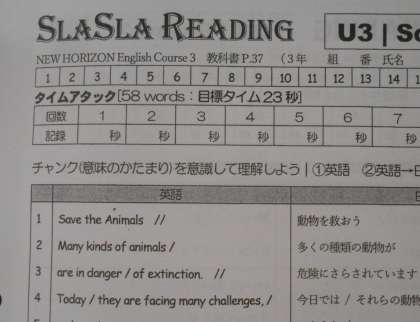 SLASLA READING U3 | Sc
NEW HORIZON English Course 3 教科書 P.37 (3年 組 番 氏名
1 2 3 4 5 6 7 8 9 10 11 12 13 14 1
タイムアタック[58 words：目標タイム23秒]
回数 1 2 3 4 5 6 7
記録 秒 秒 秒 秒 秒 秒 秒
チャンク(意味のかたまり)を意識して理解しよう | ①英語 ②英語→日
英語 日
1 Save the Animals // 動物を救おう
2 Many kinds of animals / 多くの種類の動物が
3 are in danger / of extinction. // 危険にさらされています
4 Today / they are facing many challenges, / 今日では / それらの動物